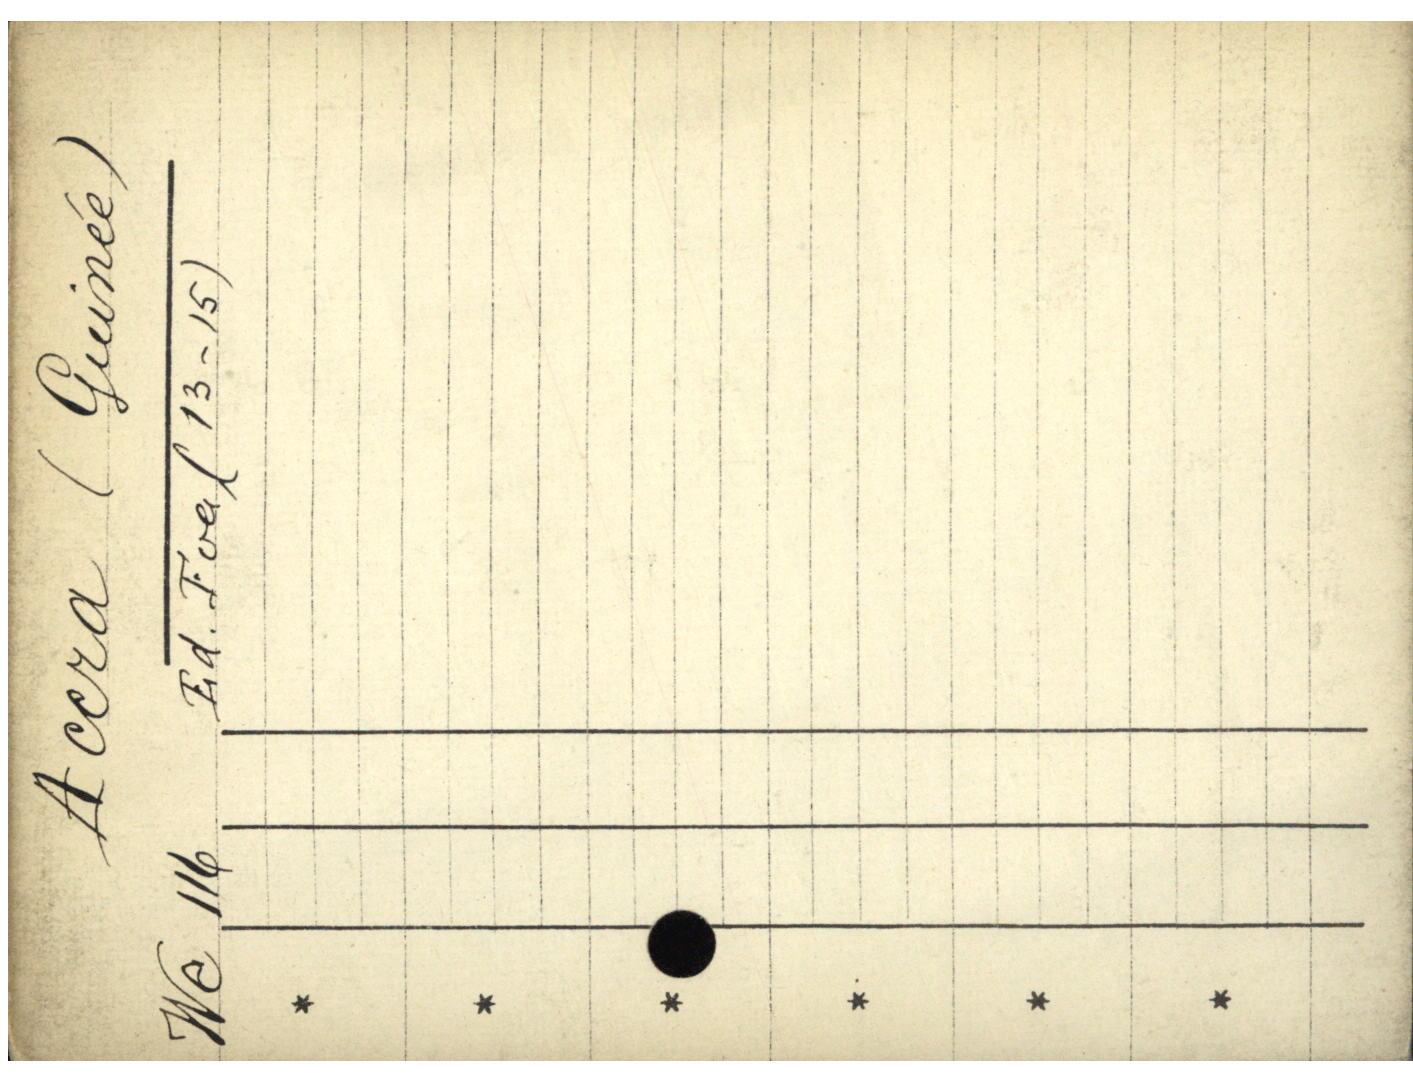 Accra (Guinée)
We 116 Ed. Foa (13-15)
*
*
*
*
*
*